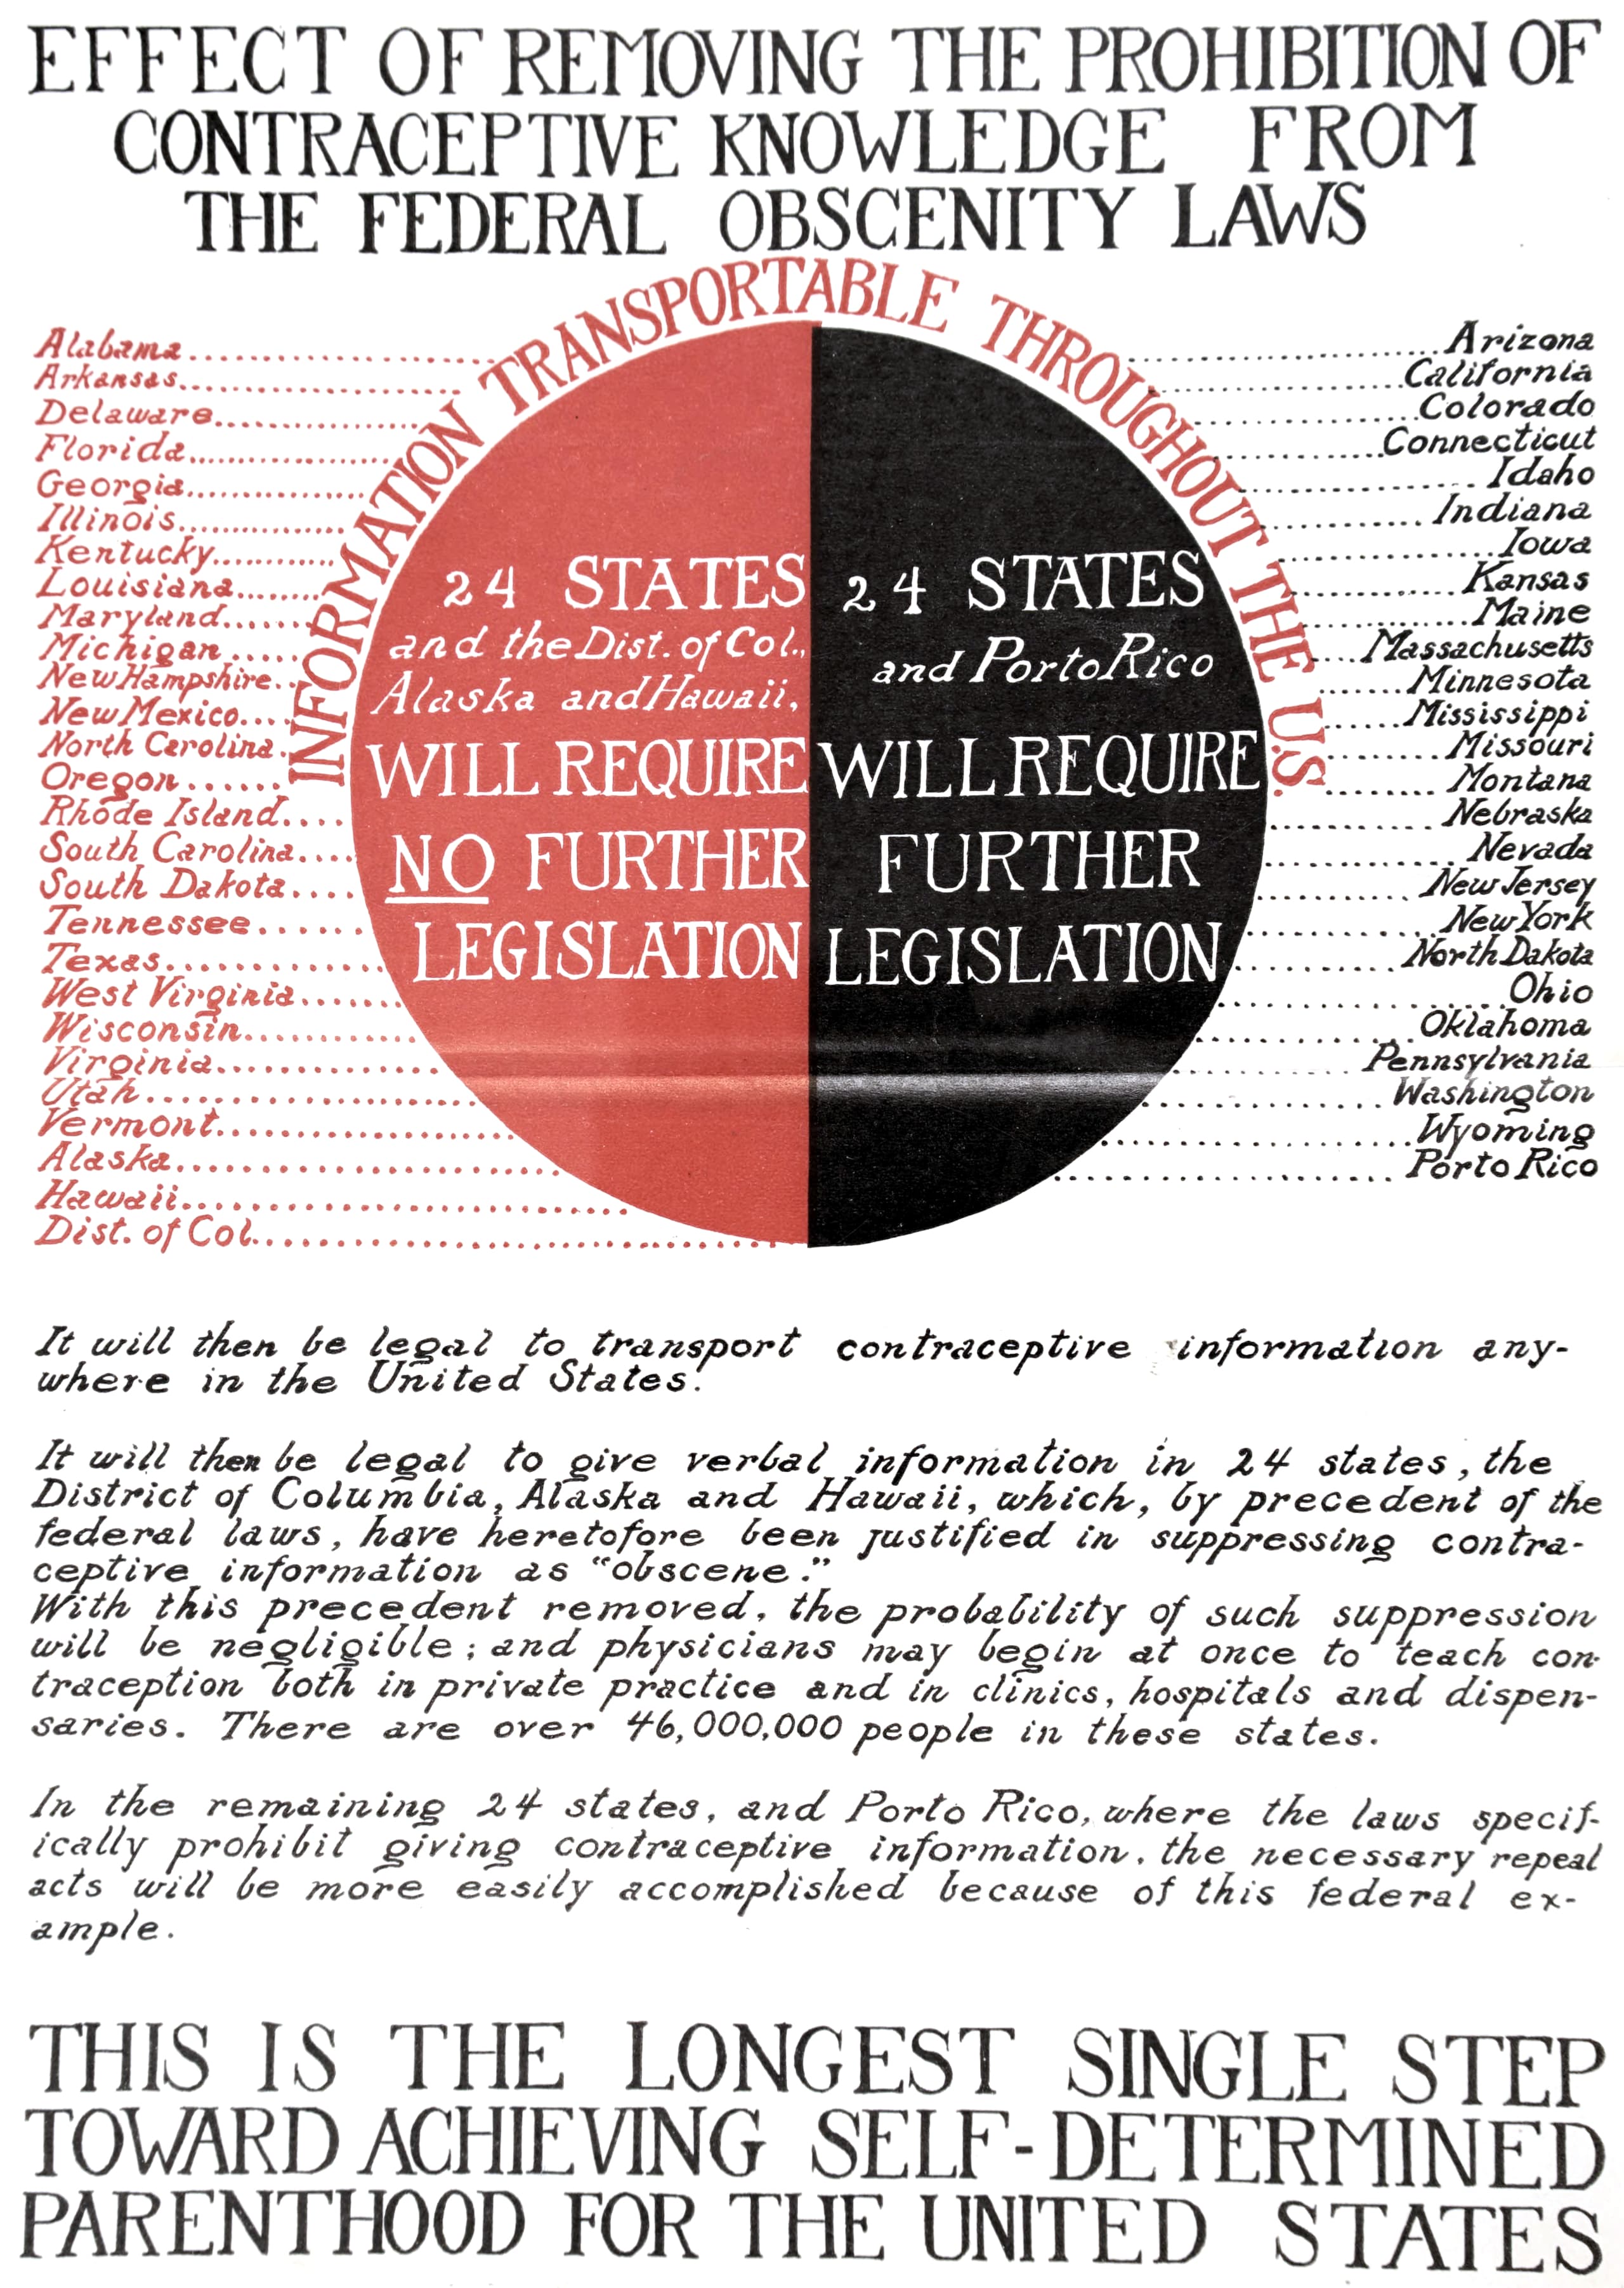 EFFECT OF REMOVING THE PROHIBITION OF
CONTRACEPTIVE KNOWLEDGE FROM
THE FEDERAL OBSCENITY LAWS
INFORMATION TRANSPORTABLE THROUGHOUT THE U.S.
Alabama
Arkansas
Delaware
Florida
Georgia
Illinois
Kentucky
Louisiana
Maryland
Michigan
New Hampshire
New Mexico
North Carolina
Oregon
Rhode Island
South Carolina
South Dakota
Tennessee
Texas
West Virginia
Wisconsin
Virginia
Utah
Vermont
Alaska
Hawaii
Dist. of Col.
24 STATES
and the Dist. of Col.,
Alaska and Hawaii,
WILL REQUIRE
NO FURTHER
LEGISLATION
24 STATES
and Porto Rico
WILL REQUIRE
FURTHER
LEGISLATION
Arizona
California
Colorado
Connecticut
Idaho
Indiana
Iowa
Kansas
Maine
Massachusetts
Minnesota
Mississippi
Missouri
Montana
Nebraska
Nevada
New Jersey
New York
North Dakota
Ohio
Oklahoma
Pennsylvania
Washington
Wyoming
Porto Rico
It will then be legal to transport contraceptive information any-
where in the United States.
It will then be legal to give verbal information in 24 states, the
District of Columbia, Alaska and Hawaii, which, by precedent of the
federal laws, have heretofore been justified in suppressing contra-
ceptive information as "obscene."
With this precedent removed, the probability of such suppression
will be negligible; and physicians may begin at once to teach con-
traception both in private practice and in clinics, hospitals and dispen-
saries. There are over 46,000,000 people in these states.
In the remaining 24 states, and Porto Rico, where the laws specif-
ically prohibit giving contraceptive information, the necessary repeal
acts will be more easily accomplished because of this federal ex-
ample.
THIS IS THE LONGEST SINGLE STEP
TOWARD ACHIEVING SELF-DETERMINED
PARENTHOOD FOR THE UNITED STATES